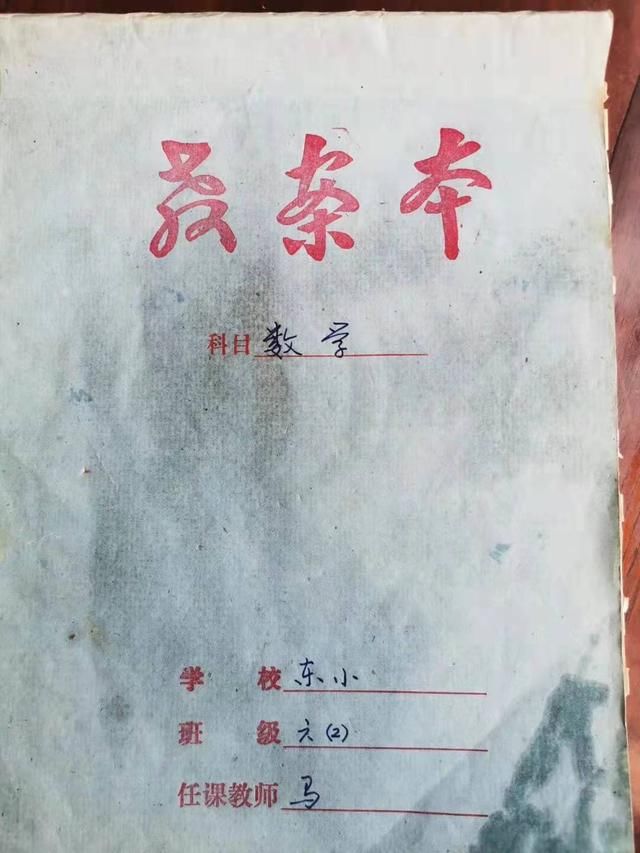 教案本
科目 数学
学校 东小
班级 六(2)
任课教师 马